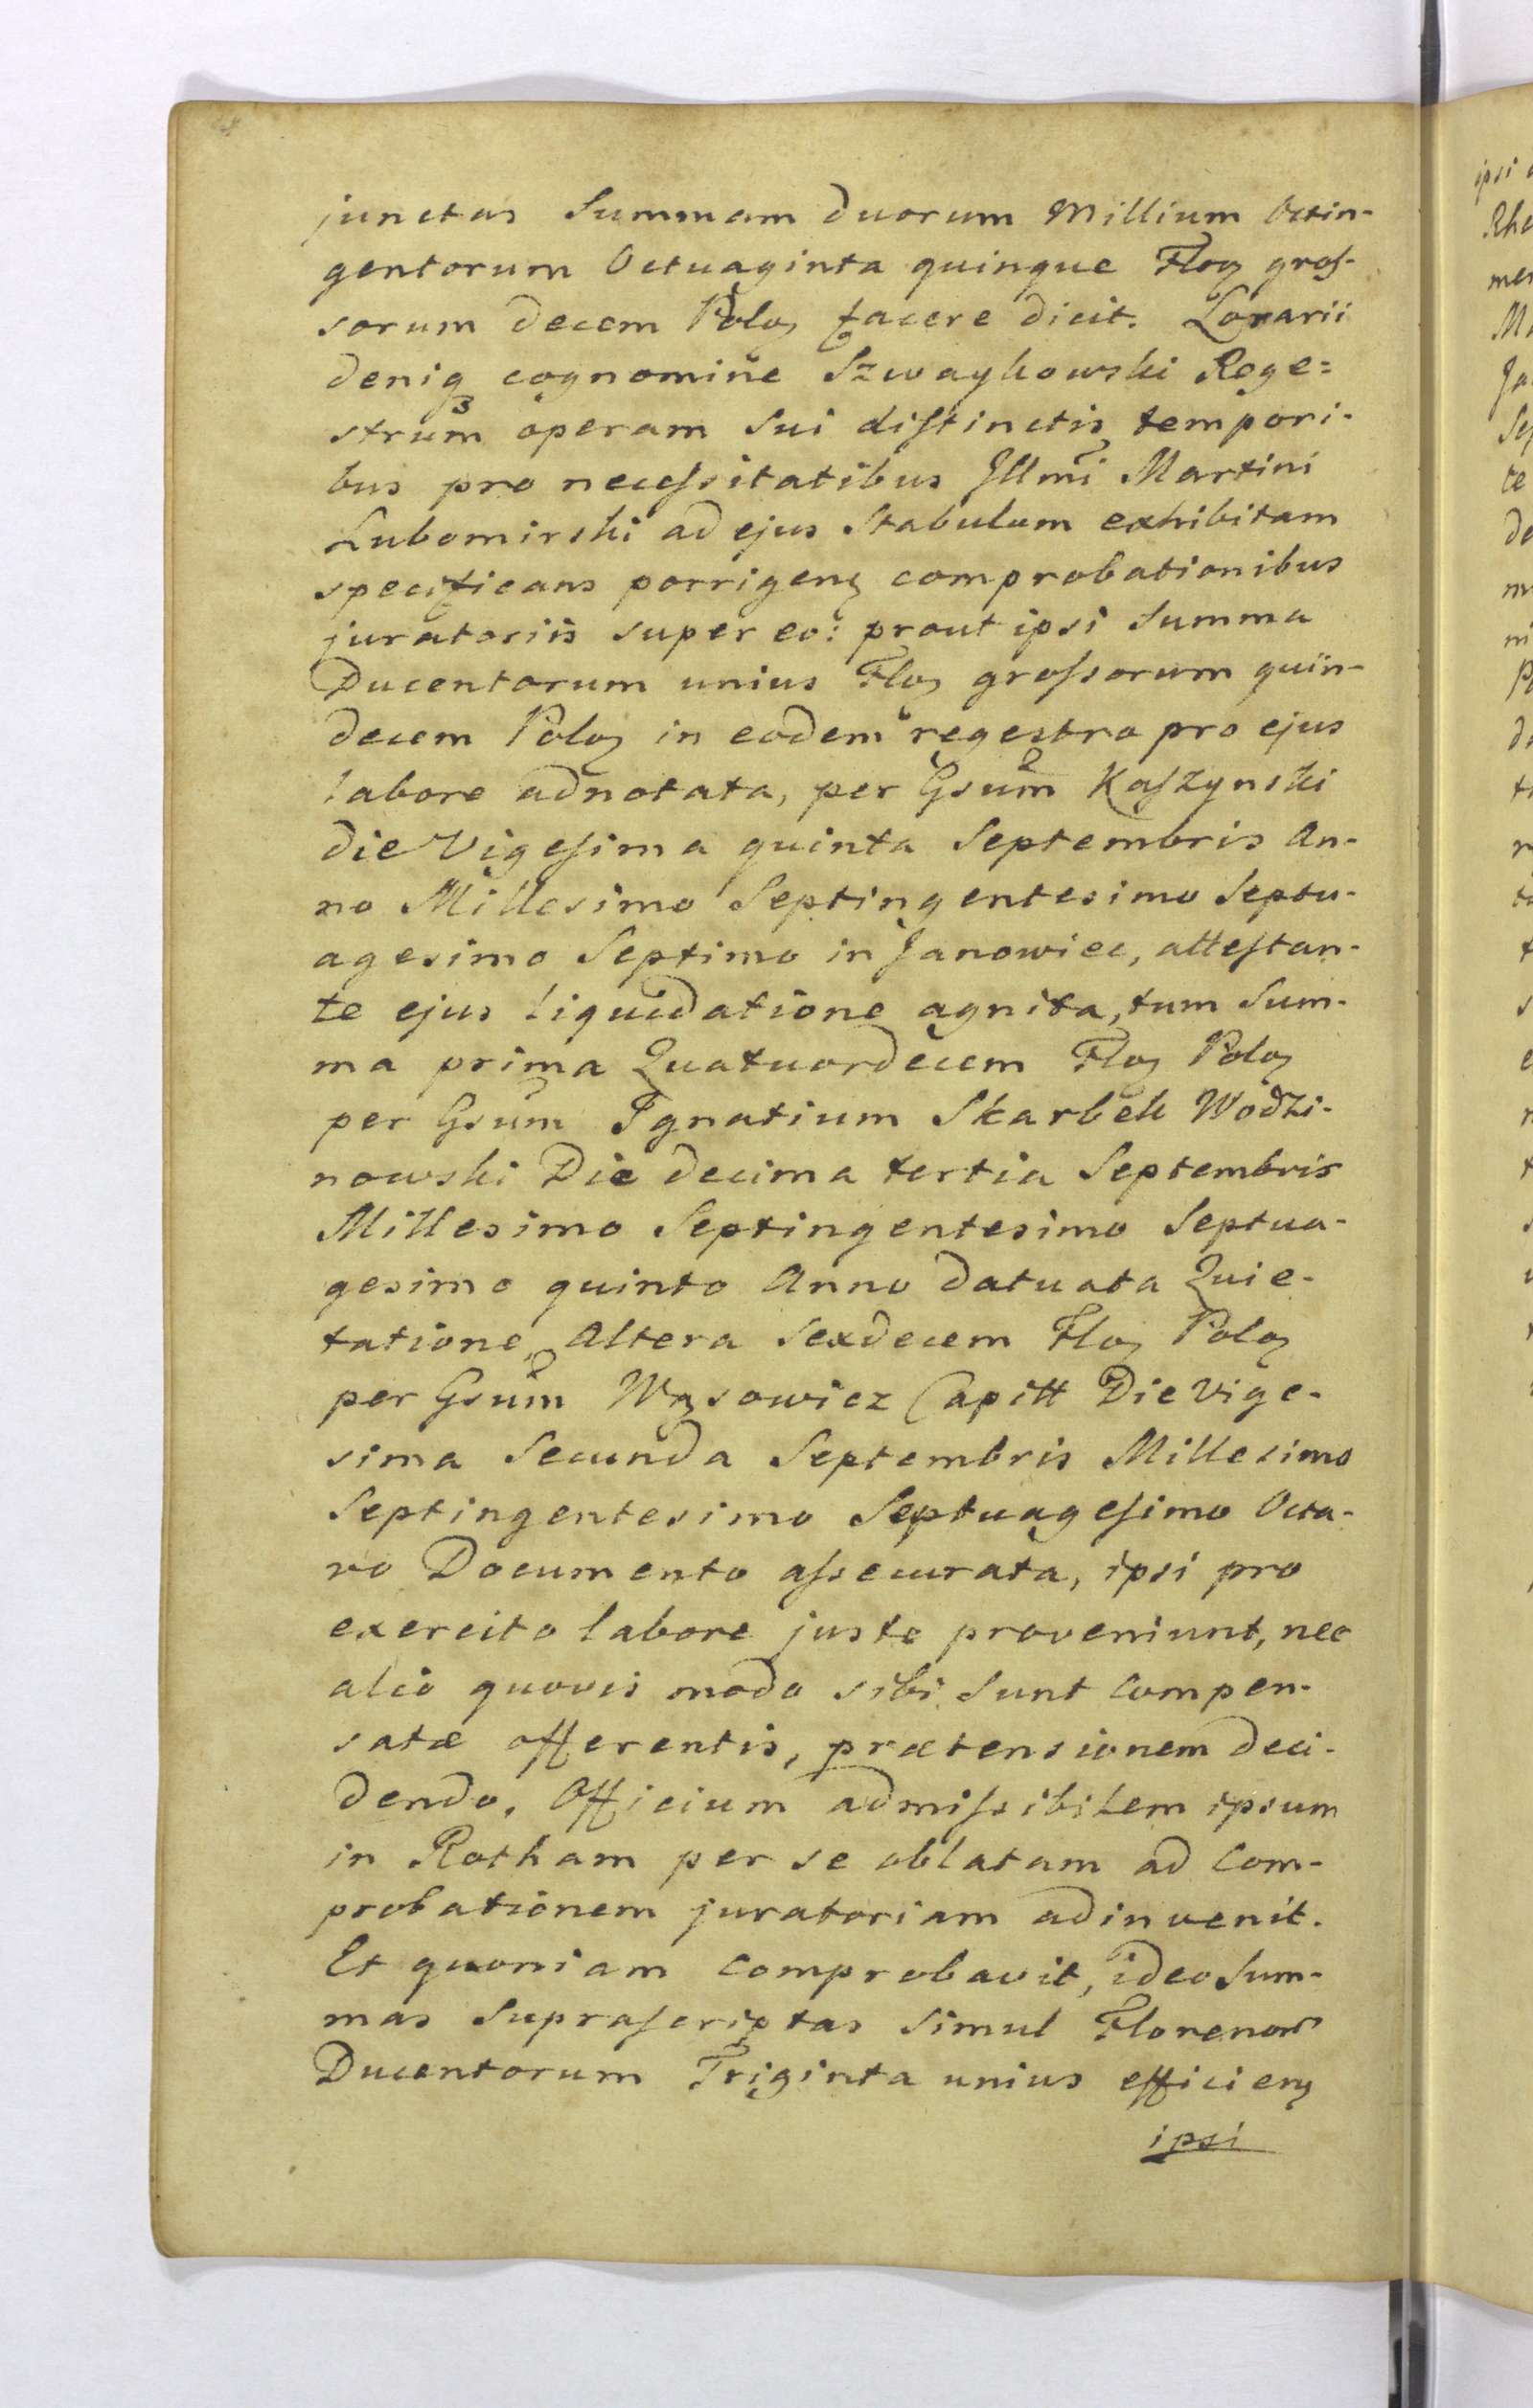 junctas Summam duorum Millium Octin-
gentorum Octuaginta quinque Floꝝ groſ-
sorum decem Poloꝝ facere dicit. Lorarii
deniqꝫ cognomine Szwaykowski Rege=
strum operam sui diſtinctis tempori-
bus pro neceſsitatibus Illmi Martini
Lubomirski ad ejus Stabulum exhibitam
specificans porrigenꝭ comprobationibus
juratoriis super eo: prout ipsi Summa
Ducentorum unius Floꝝ groſsorum quin-
decem Poloꝝ in eodem regestro pro ejus
labore adnotata, per Gsum̃ Kaſzynski
die Vigeſima quinta Septembris An-
no Millesimo Septingentesimo Septu-
agesimo Septimo in Janowiec, atteſtan-
te ejus liquidatione agnita, tum Sum-
ma prima Quatuordecem Floꝝ Poloꝝ
per Gsum̃ Ignatium Skarbek Wodzi-
nowski Die decima tertia Septembris
Millesimo Septingentesimo Septua-
gesimo quinto Anno datuata Quie-
tatione, Altera Sexdecem Floꝝ Poloꝝ
per Gsum̃ Wąsowicz Capitt Die Vige-
sima Secunda Septembris Millesimo
Septingentesimo Septuageſimo Octa-
vo Documento aſsecurata, ipsi pro
exercito labore juste proveniunt, nec
alio quovis modo sibi Sunt compen-
satæ offerentis, prætensionem deci-
dendo, Officium admiſsibilem ipsum
in Rotham per se oblatam ad Com-
probationem juratoriam adinvenit.
Et quoniam Comprobavit, ideo Sum-
mas Supraſcriptas Simul Florenorꝭ
Ducentorum Triginta unius efficienꝭ
ipsi